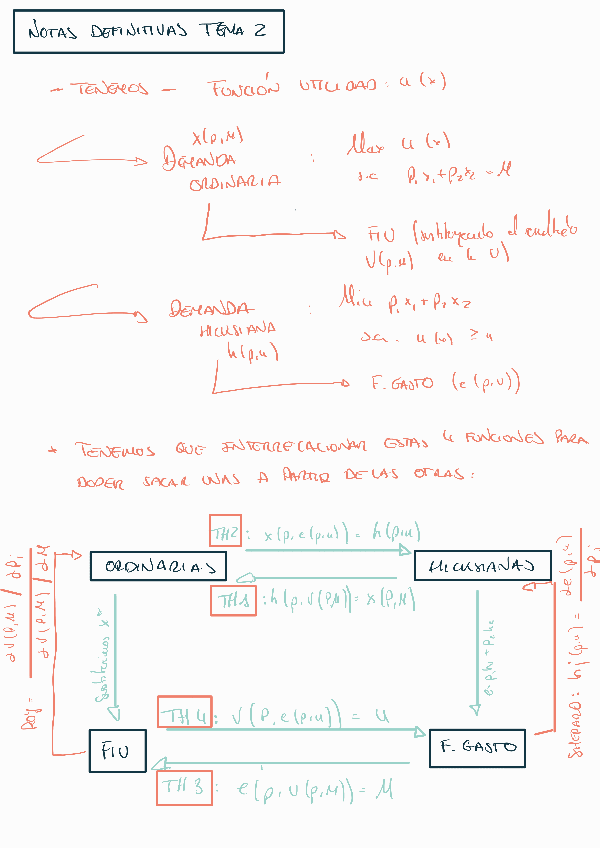 NOTAS DEFINITIVAS TEMA 2
- TENEMOS - FUNCIÓN UTILIDAD: u(x)
x(p,M)
DEMANDA ORDINARIA : Max u(x)
s.a P₁x₁+P₂x₂=M
FIU (sustituyendo el
V(p,M) en la U)
DEMANDA HICKSIANA : Min P₁x₁+P₂x₂
h(p,u) s.a. u(x) ≥ u
F. GASTO (e(p,u))
* TENEMOS QUE INTERRELACIONAR ESTAS 4 FUNCIONES PARA
PODER SACAR UNAS A PARTIR DE LAS OTRAS:
TH2: x(p,e(p,u)) = h(p,u)
ORDINARIAS HICKSIANAS
TH1: h(p,v(p,M)) = x(p,M)
Roy = ∂V(P,M)/∂Pj / ∂V(P,M)/∂M
Sustituimos x*
e=p₁h₁+p₂h₂
SHEPARD: hj(p,u) = ∂e(p,u)/∂Pj
TH4: V(P,e(p,u)) = u
FIU F. GASTO
TH3: e(p,v(p,M)) = M